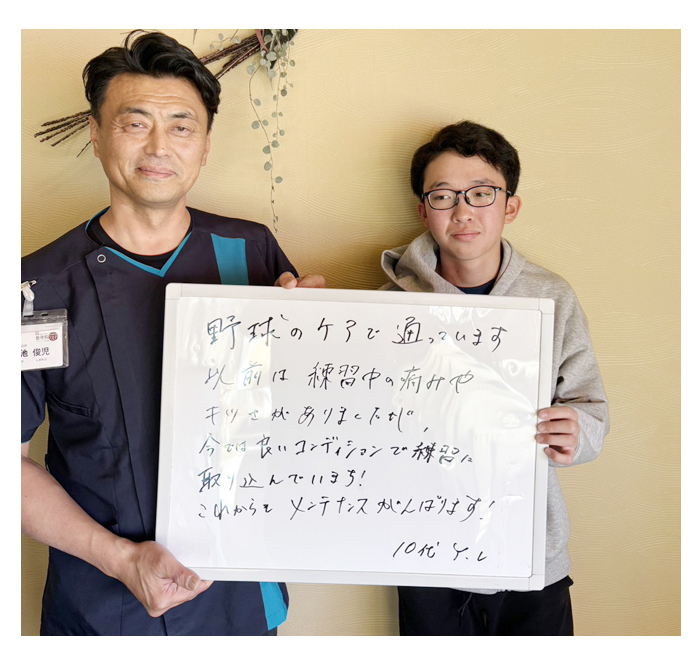 池 俊児
野球のケアで通っています
以前は練習中の痛みや
キツさがありましたが、
今では良いコンディションで練習に
取り込んでいます!
これからもメンテナンスがんばります!
10代 Y.L